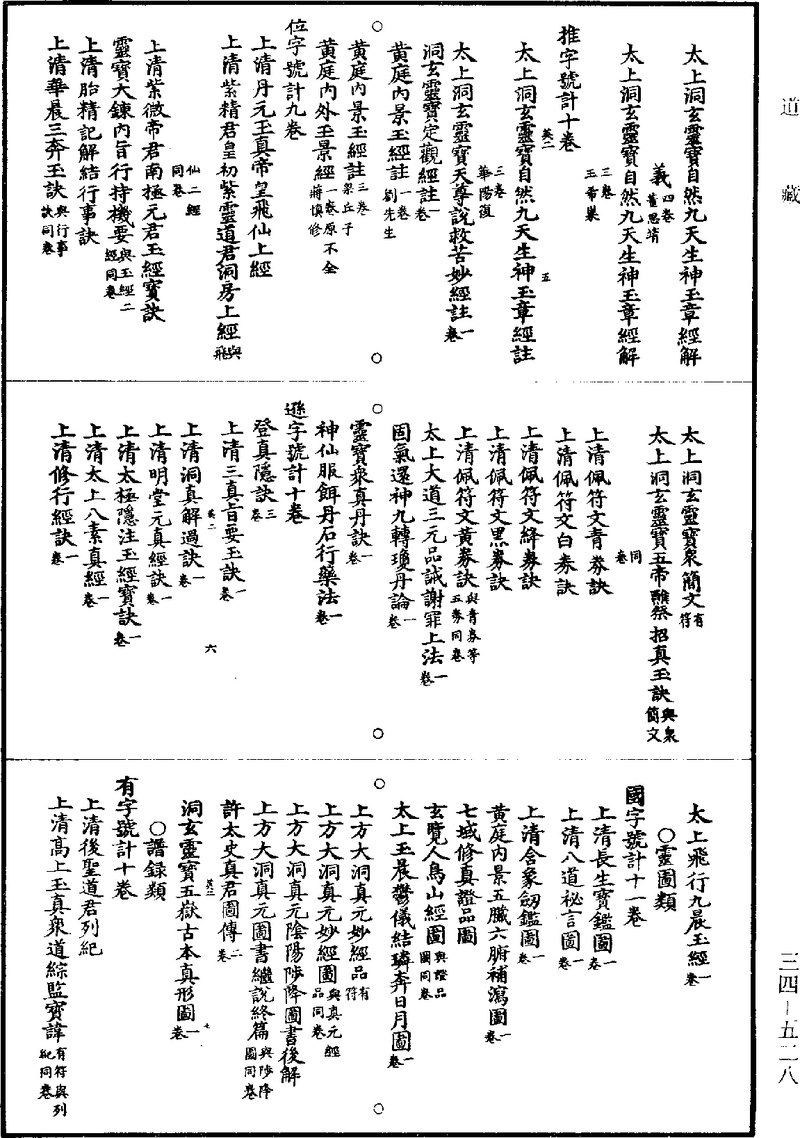 道藏
太上洞玄靈寶自然九天生神玉章經解
義四卷董思靖
太上洞玄靈寶自然九天生神玉章經解
三卷王希巢
推字號計十卷
英二
太上洞玄靈寶自然九天生神玉章經註
三卷華陽復
五
太上洞玄靈寶天尊說救苦妙經註一卷
洞玄靈寶定觀經註一卷
黃庭內景玉經註一卷劉先生
黃庭內景玉經註三卷梁丘子
黃庭內外玉景經一卷原不全蔣慎修
位字號計九卷
上清丹元玉真帝皇飛仙上經
上清紫精君皇初紫靈道君洞房上經與飛
仙二經同卷
上清紫微帝君南極元君玉經寶訣
靈寶大鍊內旨行持機要與玉經二經同卷
上清胎精記解結行事訣
上清華晨三奔玉訣與行事訣同卷
太上洞玄靈寶眾簡文有符
太上洞玄靈寶五帝醮祭招真玉訣與眾簡文
同卷
上清佩符文青券訣
上清佩符文白券訣
上清佩符文絳券訣
上清佩符文黑券訣
上清佩符文黃券訣與青券等五券同卷
太上大道三元品誡謝罪上法一卷
固氣還神九轉瓊丹論一卷
靈寶眾真丹訣一卷
神仙服餌丹石行藥法一卷
遜字號計十卷
登真隱訣三卷
上清三真旨要玉訣一卷
英二
六
上清洞真解過訣一卷
上清明堂元真經訣一卷
上清太極隱注玉經寶訣一卷
上清太上八素真經一卷
上清修行經訣一卷
太上飛行九晨玉經一卷
○靈圖類
國字號計十一卷
上清長生寶鑑圖一卷
上清八道祕言圖一卷
上清含象劒鑑圖一卷
黃庭內景五臟六腑補瀉圖一卷
七域修真證品圖
玄覽人鳥山經圖與證品圖同卷
太上玉晨鬱儀結璘奔日月圖一卷
上方大洞真元妙經品有符
上方大洞真元妙經圖與真元經品同卷
上方大洞真元陰陽陟降圖書後解
上方大洞真元圖書繼說終篇與陟降圖同卷
許太史真君圖傳二卷
英三
七
洞玄靈寶五嶽古本真形圖一卷
○譜録類
有字號計十卷
上清後聖道君列紀
上清高上玉真眾道綜監寶諱有符與列紀同卷
三四—五二八